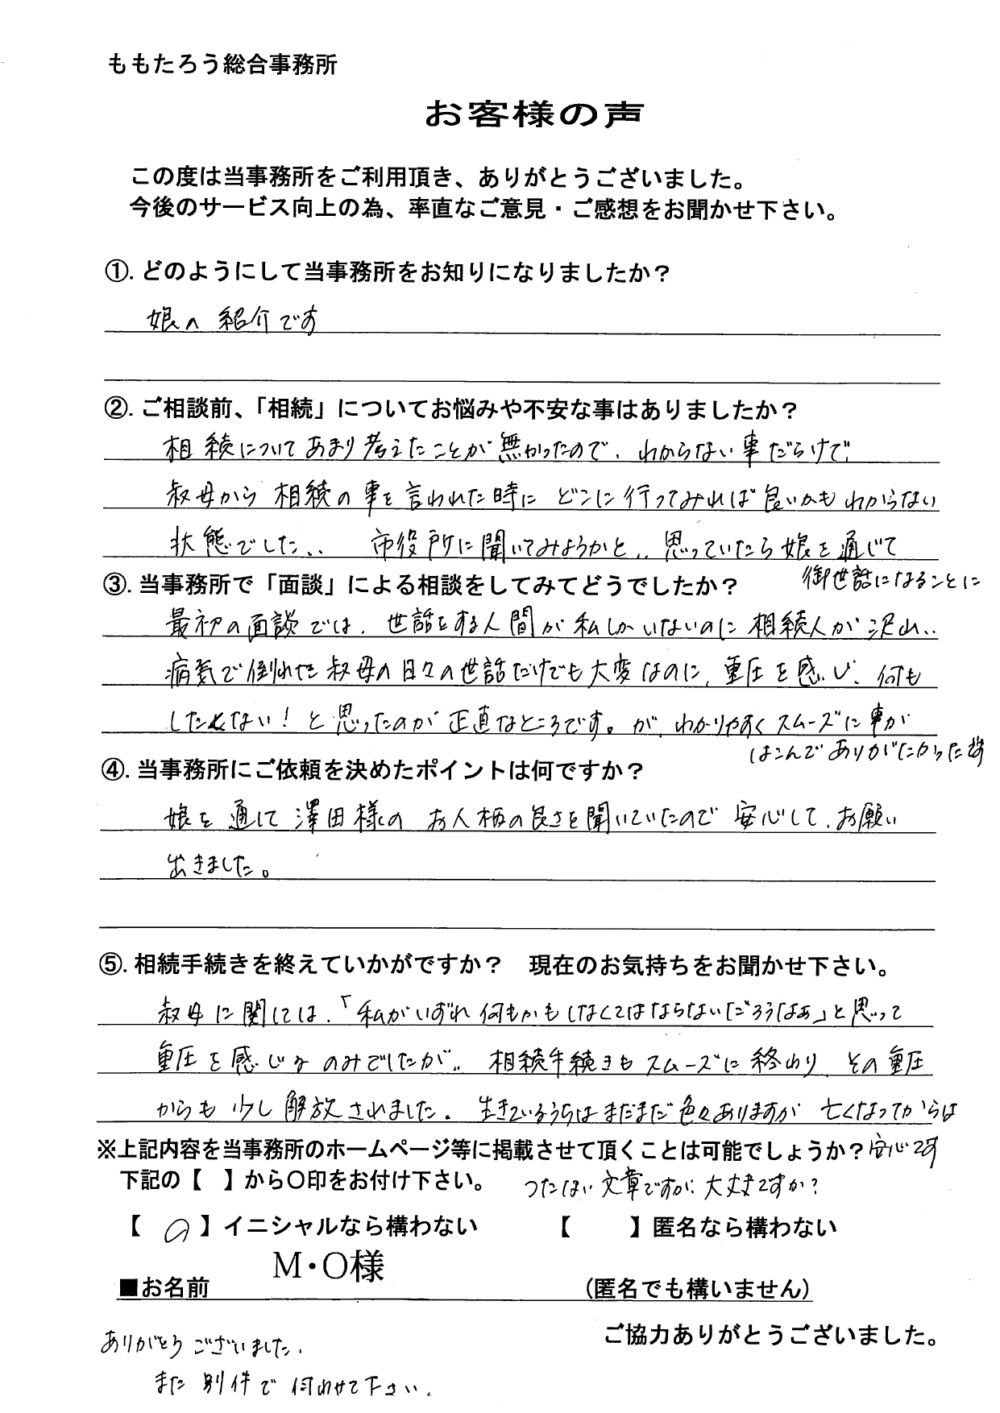 ももたろう総合事務所
お客様の声
この度は当事務所をご利用頂き、ありがとうございました。
今後のサービス向上の為、率直なご意見・ご感想をお聞かせ下さい。
①. どのようにして当事務所をお知りになりましたか？
娘の紹介です
②. ご相談前、「相続」についてお悩みや不安な事はありましたか？
相続についてあまり考えたことが無かったので、わからない事だらけで、
叔母から相続の事を言われた時にどこに行ってみれば良いかもわからない
状態でした、、市役所に聞いてみようかと、、思っていたら娘を通じて
御世話になることに
③. 当事務所で「面談」による相談をしてみてどうでしたか？
最初の面談では、世話をする人間が私しかいないのに相続人が沢山、、
病気で倒れた叔母の日々の世話だけでも大変なのに、重圧を感じ、何も
したくない！と思ったのが正直なところです。が、わかりやすくスムーズに事が
はこんでありがたかったです
④. 当事務所にご依頼を決めたポイントは何ですか？
娘を通して澤田様のお人柄の良さを聞いていたので安心して、お願い
出きました。
⑤. 相続手続きを終えていかがですか？　現在のお気持ちをお聞かせ下さい。
叔母に関しては、「私がいずれ何もかもしなくてはならないだろうなぁ」と思って
重圧を感じるのみでしたが、、相続手続きもスムーズに終わり、その重圧
からも少し解放されました。生きているうちはまだまだ色々ありますが亡くなってからは
安心です
※上記内容を当事務所のホームページ等に掲載させて頂くことは可能でしょうか？
下記の【　】から〇印をお付け下さい。
つたない文章ですが、大丈夫ですか？
【 〇 】イニシャルなら構わない　【　】匿名なら構わない
■お名前　M・O様　（匿名でも構いません）
ご協力ありがとうございました。
ありがとうございました、
また別件で伺わせて下さい、